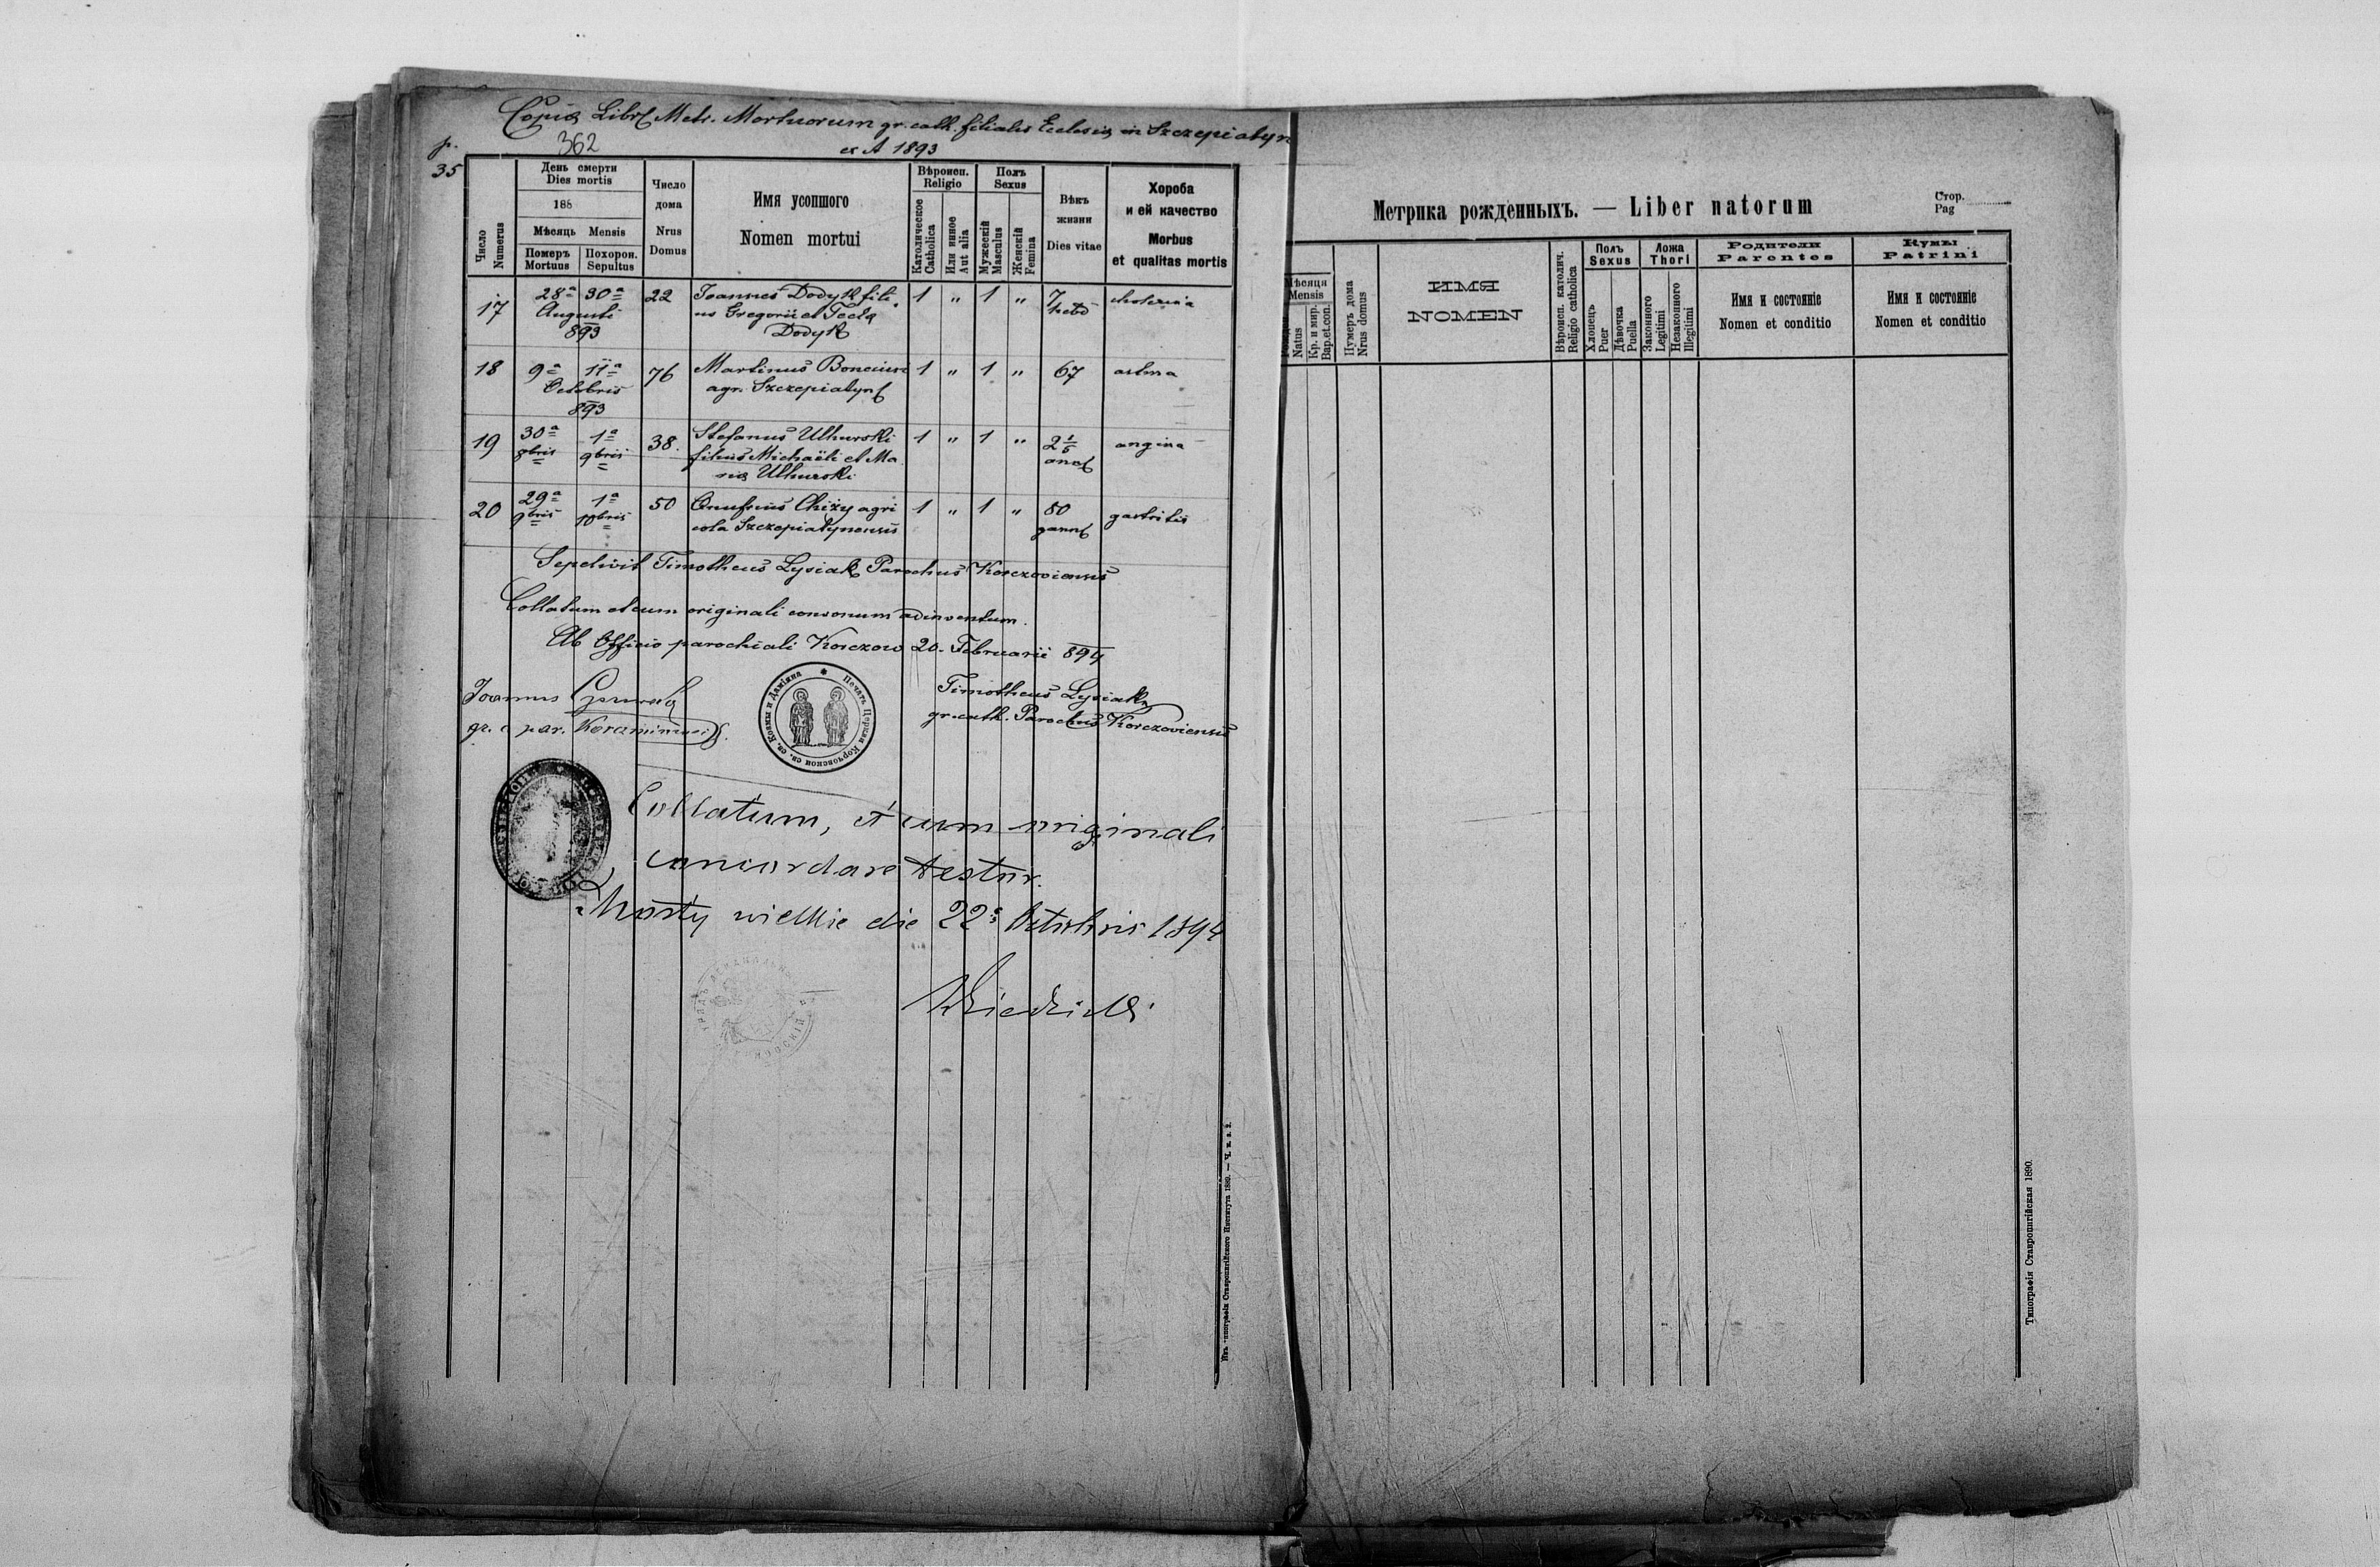 Copia Libri Metr. Mortuorum gr. cath. filialis Ecclesiæ in Szczepiatyn
362
ex A 1893
p.
35
Число
Numerus
День смерти
Dies mortis
188
Мѣсяць Mensis
Померъ
Mortuus
Похорон.
Sepultus
Число
дома
Nrus
Domus
Имя усопшого
Nomen mortui
Вѣроисп.
Religio
Католическое
Catholica
Или инное
Aut alia
Полъ
Sexus
Мужескій
Masculus
Женскій
Femina
Вѣкъ
жизни
Dies vitae
Хороба
и ей качество
Morbus
et qualitas mortis
17 28ª 30ª 22 Joannes Dodyk fili- 1 " 1 " 7 cholerina
Augusti us Gregorii et Tecla hebd
893 Dodyk
18 9ª 11ª 76 Martinus 1 " 1 " 67 astma
Octobris agr. Szczepiatyn
893
19 30ª 1ª 38. Stefanus Uhurski 1 " 1 " 2 1/5 angina
8bris 9bris filius Michaëli et Ma
ria Uhurski
20 29ª 1ª 50 Onufrius Chiży agri 1 " 1 " 80 gastritis
9bris 10bris cola Szczepiatynensis
Sepelivit Timotheus Lysiak Parochus Korczoviensis
Collatum et cum originali consonum adinventum.
Ab Officio parochiali Korczow 20. Februarii 894
Joannus
gr. c. par.
Печать Церкви Корчовской св. св. Козмы и Даміяна
Timotheus Lysiak
gr. cath. Parochus Korczoviensis
Collatum, et cum originali
concordare testor.
Mosty wielkie die 22ª Octobris 1894
Изъ типографіи Ставропигійского Института 1889. — Ч. м. л. 2.
Метрика рожденныхъ. — Liber natorum
Стор.
Pag
Мѣсяця
Mensis
Natus
Кр. и мир.
Bap.et.con.
Нумеръ дома
Nrus domus
ИМЯ
NOMEN
Вѣроисп. католич.
Religio catholica
Полъ
Sexus
Хлопець
Puer
Дѣвочка
Puella
Ложа
Thori
Законного
Legitimi
Незаконного
Illegitimi
Родители
Parentes
Имя и состоянiе
Nomen et conditio
Кумы
Patrini
Имя и состоянiе
Nomen et conditio
Типографія Ставропигійская 1890.